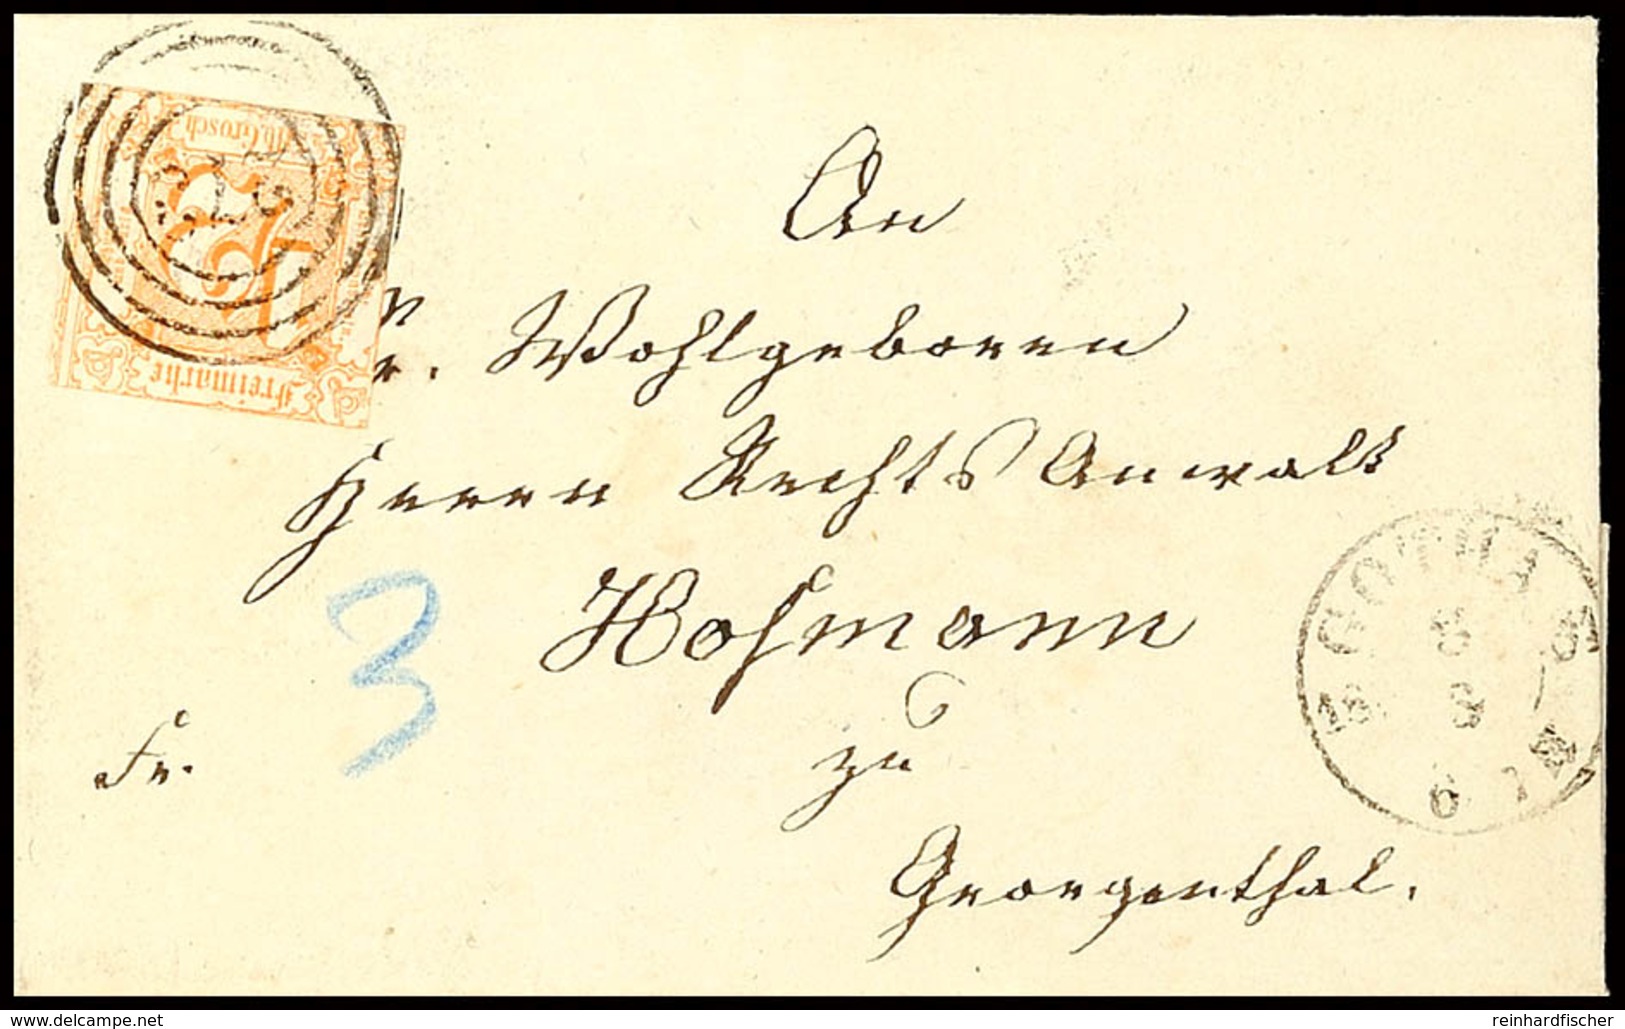 An
Wohlgeboren
Herrn Rechts Anwalt
Hofmann
zu
Georgenthal.
Fr.
3
Freimarke
Grosch
GOTHA
www.delcampe.net
reinhardfischer